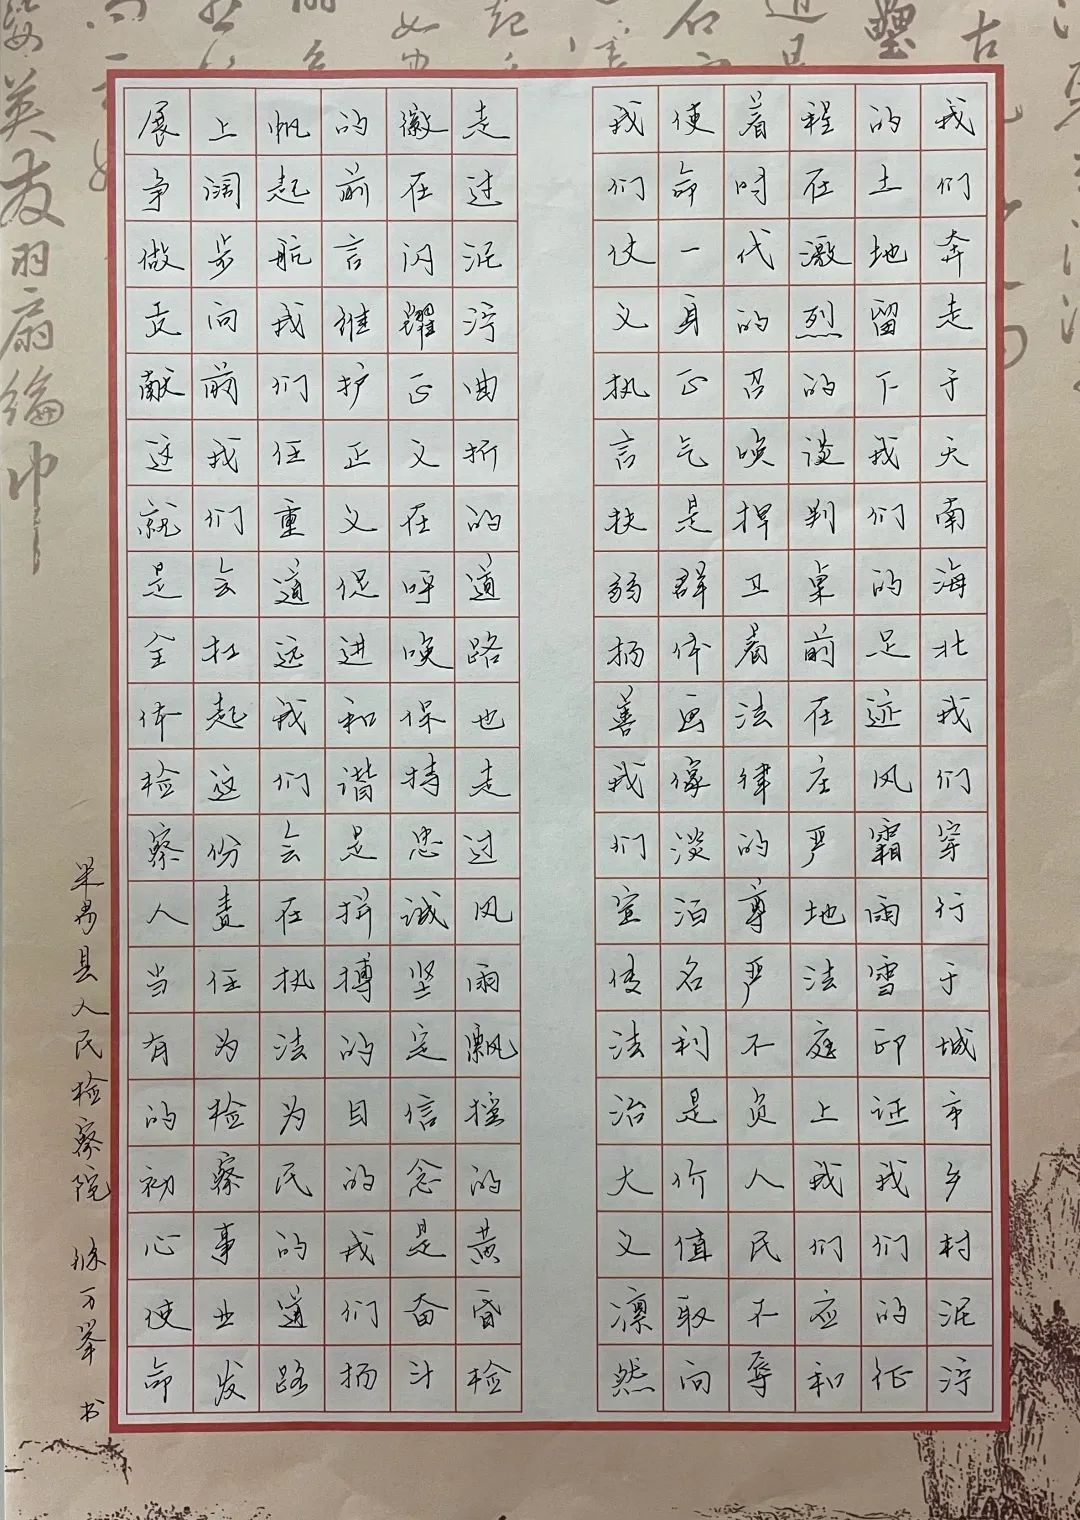 我们奔走于天南海北我们穿行于城市乡村泥泞
的土地留下我们的足迹风霜雨雪印证我们的征
程在激烈的谈判桌前在庄严地法庭上我们应和
着时代的召唤捍卫着法律的尊严不负人民不辱
使命一身正气是群体画像淡泊名利是价值取向
我们仗义执言扶弱扬善我们宣传法治大义凛然
走过泥泞曲折的道路也走过风雨飘摇的黄昏检
徽在闪耀正义在呼唤保持忠诚坚定信念是奋斗
的前言维护正义促进和谐是拼搏的目的我们扬
帆起航我们任重道远我们会在执法为民的道路
上阔步向前我们会扛起这份责任为检察事业发
展争做贡献这就是全体检察人当有的初心使命
米易县人民检察院 徐万举 书
英发羽扇綸巾